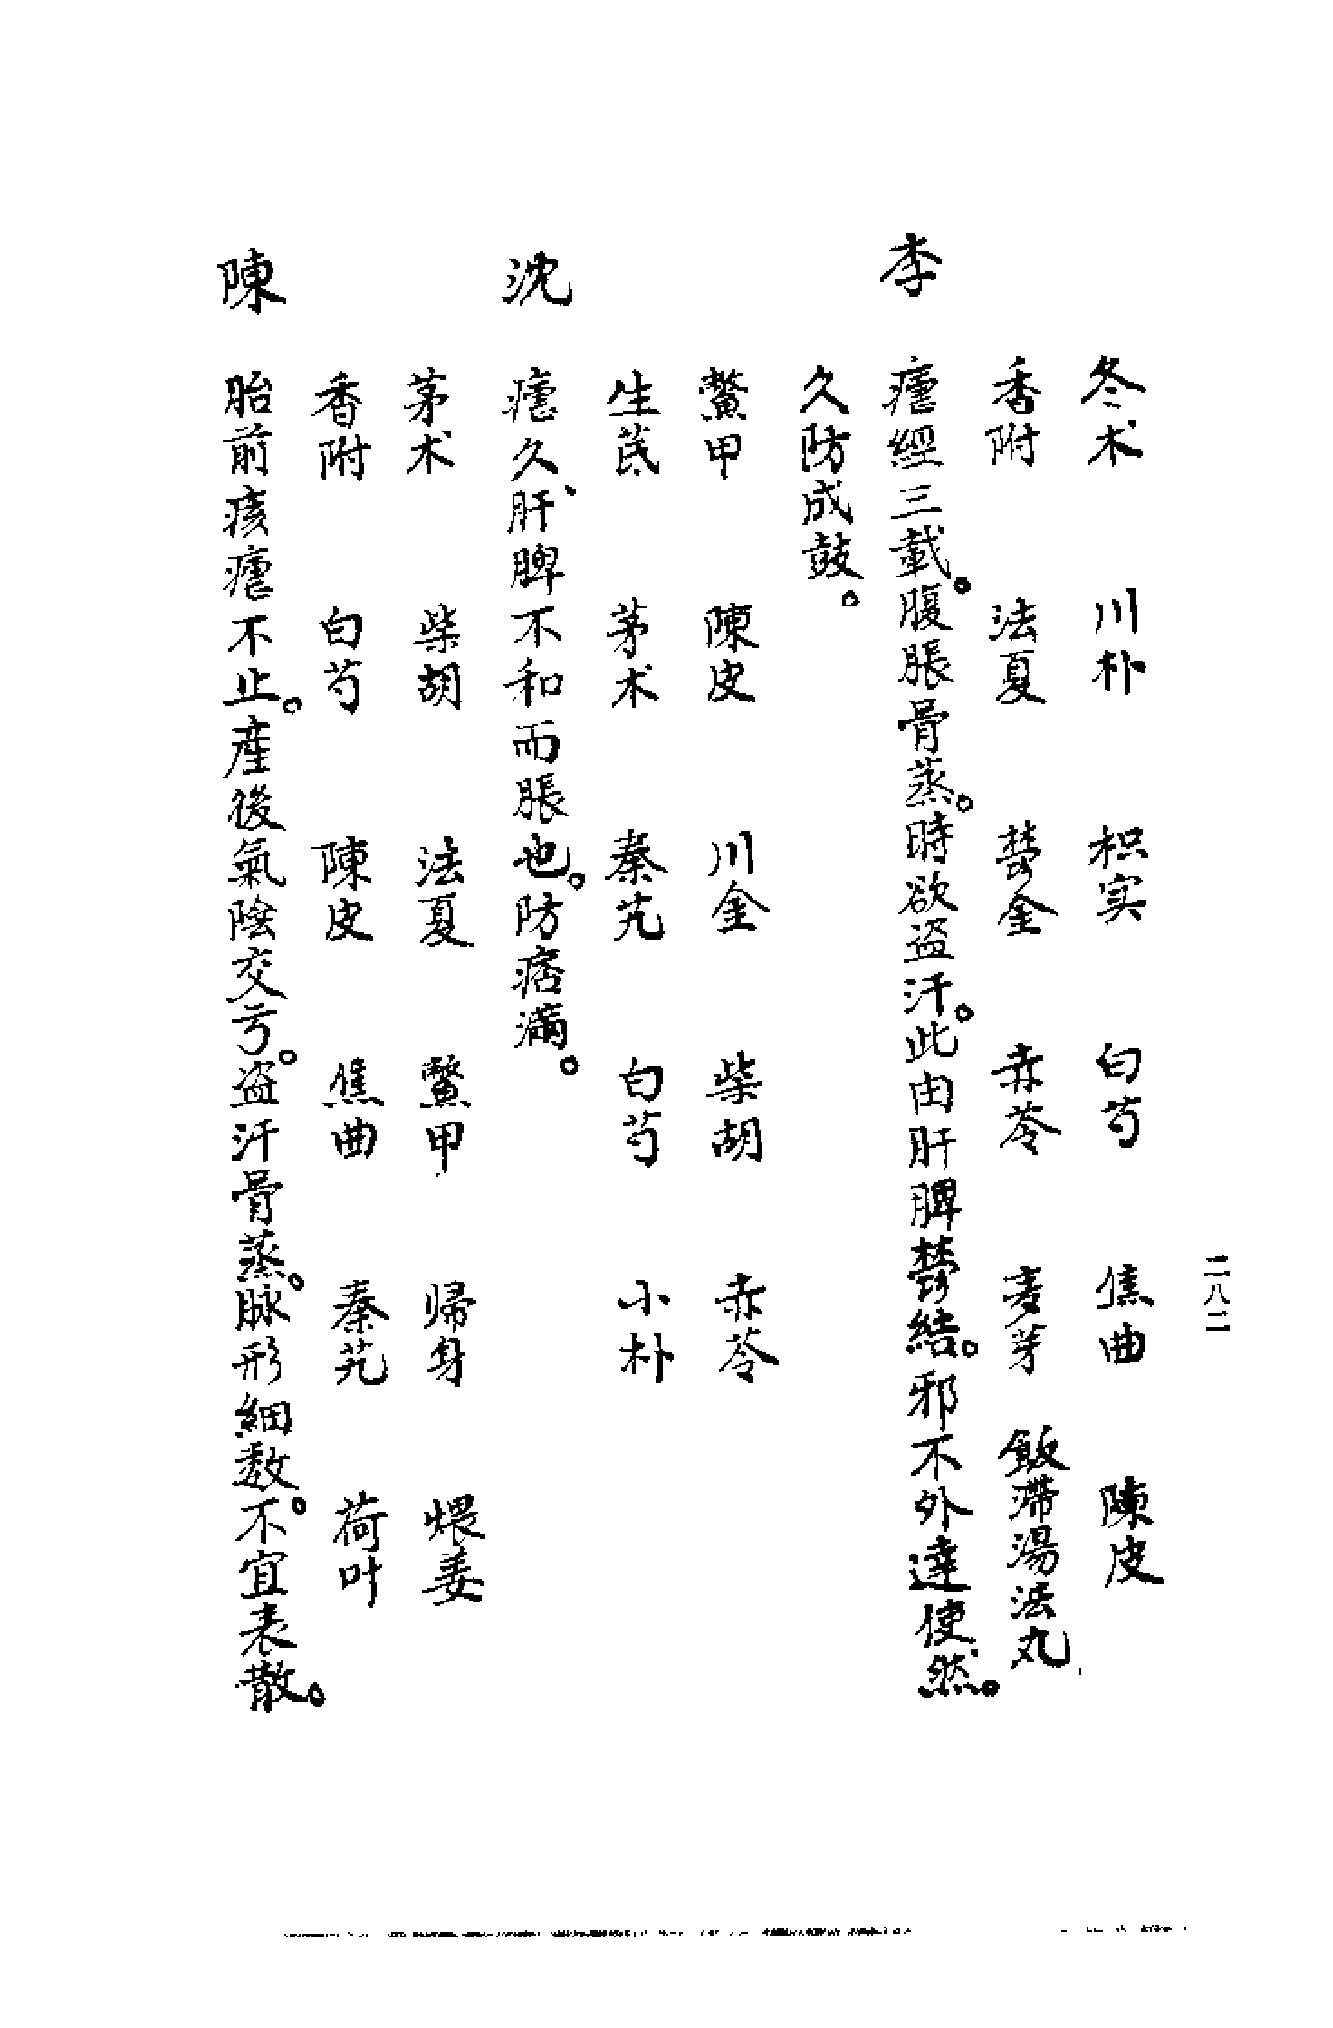 二八二
冬术 川朴 枳实 白芍 焦曲 陳皮
香附 法夏 鬱金 赤苓 麦芽 飯滯湯法丸
李 瘧經三載。腹脹骨蒸。時欲盗汗。此由肝脾鬱結。邪不外達使然。
久防成鼓。
鱉甲 陳皮 川金 柴胡 赤苓
生芪 茅术 秦艽 白芍 小朴
沈 瘧久、肝脾不和而脹也。防痞滿。
茅术 柴胡 法夏 鱉甲 帰身 煨姜
香附 白芍 陳皮 焦曲 秦艽 荷叶
陳 胎前痎瘧不止。產後氣陰交亏。盗汗骨蒸。脉形細数。不宜表散。